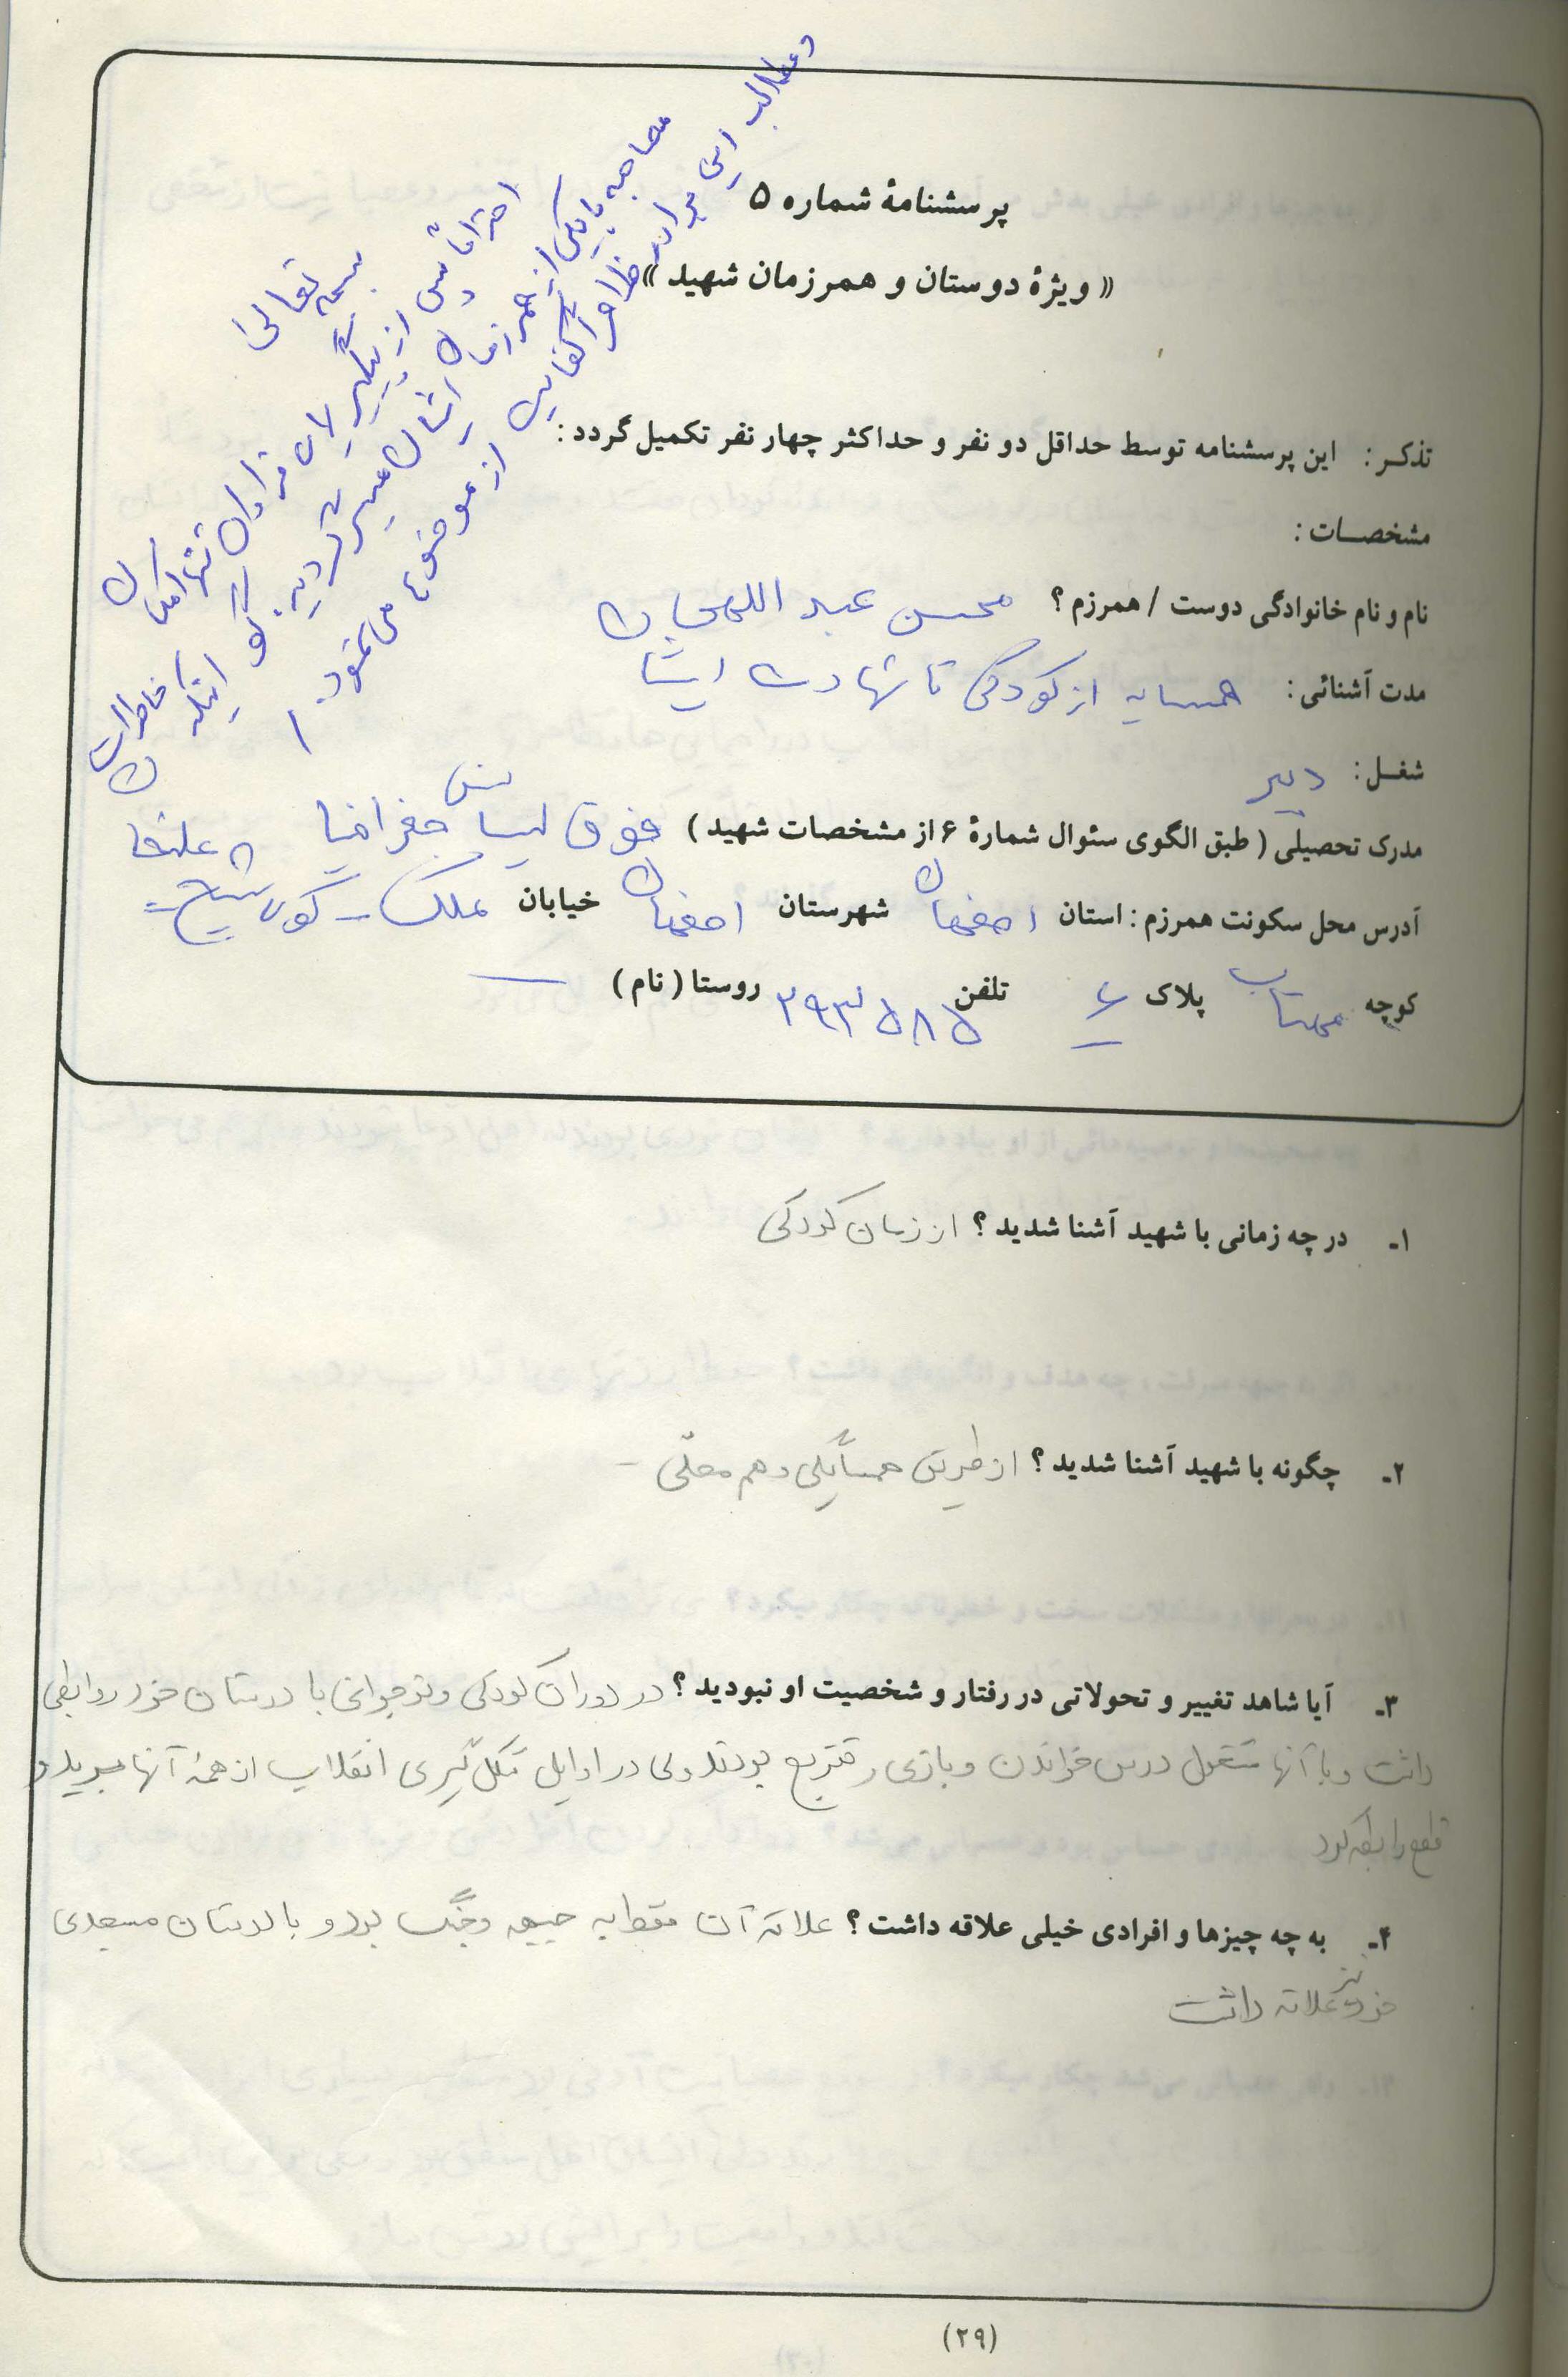 پرسشنامهٔ شماره ۵
« ویژهٔ دوستان و همرزمان شهید »
بسمه تعالی
احتراماً پس از پیگیریهای فراوان تنها امکان
مصاحبه با یکی از همرزمان ایشان میسر گردید. بگو اینکه خاطرات
و مطالب این برادر ظاهراً کفایت از موضوع می‌نمود.
تذکـر : این پرسشنامه توسط حداقل دو نفر و حداکثر چهار نفر تکمیل گردد :
مشخصـات :
نام و نام خانوادگی دوست / همرزم ؟ محسن عبد اللهیان
مدت آشنائی : همسایه از کودکی تا شهادت ایشان
شغـل : دبیر
مدرک تحصیلی ( طبق الگوی سئوال شمارهٔ ۶ از مشخصات شهید ) فوق لیسانس جغرافیا
آدرس محل سکونت همرزم : استان اصفهان شهرستان اصفهان خیابان ملک - کوی شیخ
کوچه مهتاب پلاک ۶ تلفن ۲۹۳۵۸۵ روستا ( نام ) —
۱ـ در چه زمانی با شهید آشنا شدید ؟ از زمان کودکی
۲ـ چگونه با شهید آشنا شدید ؟ از طریق همسایگی و هم محلّی -
۳ـ آیا شاهد تغییر و تحولاتی در رفتار و شخصیت او نبودید ؟ در دوران کودکی و نوجوانی با دوستان خود روابطی
داشت و با آنها مشغول درس خواندن و بازی و تفریح بودند ولی در اوایل شکل گیری انقلاب از همهٔ آنها برید و
قطع رابطه کرد
۴ـ به چه چیزها و افرادی خیلی علاقه داشت ؟ علاقه آن فقط به جبهه و جنگ بود و با دوستان مسجدی
خود نیز علاقه داشت
(۲۹)